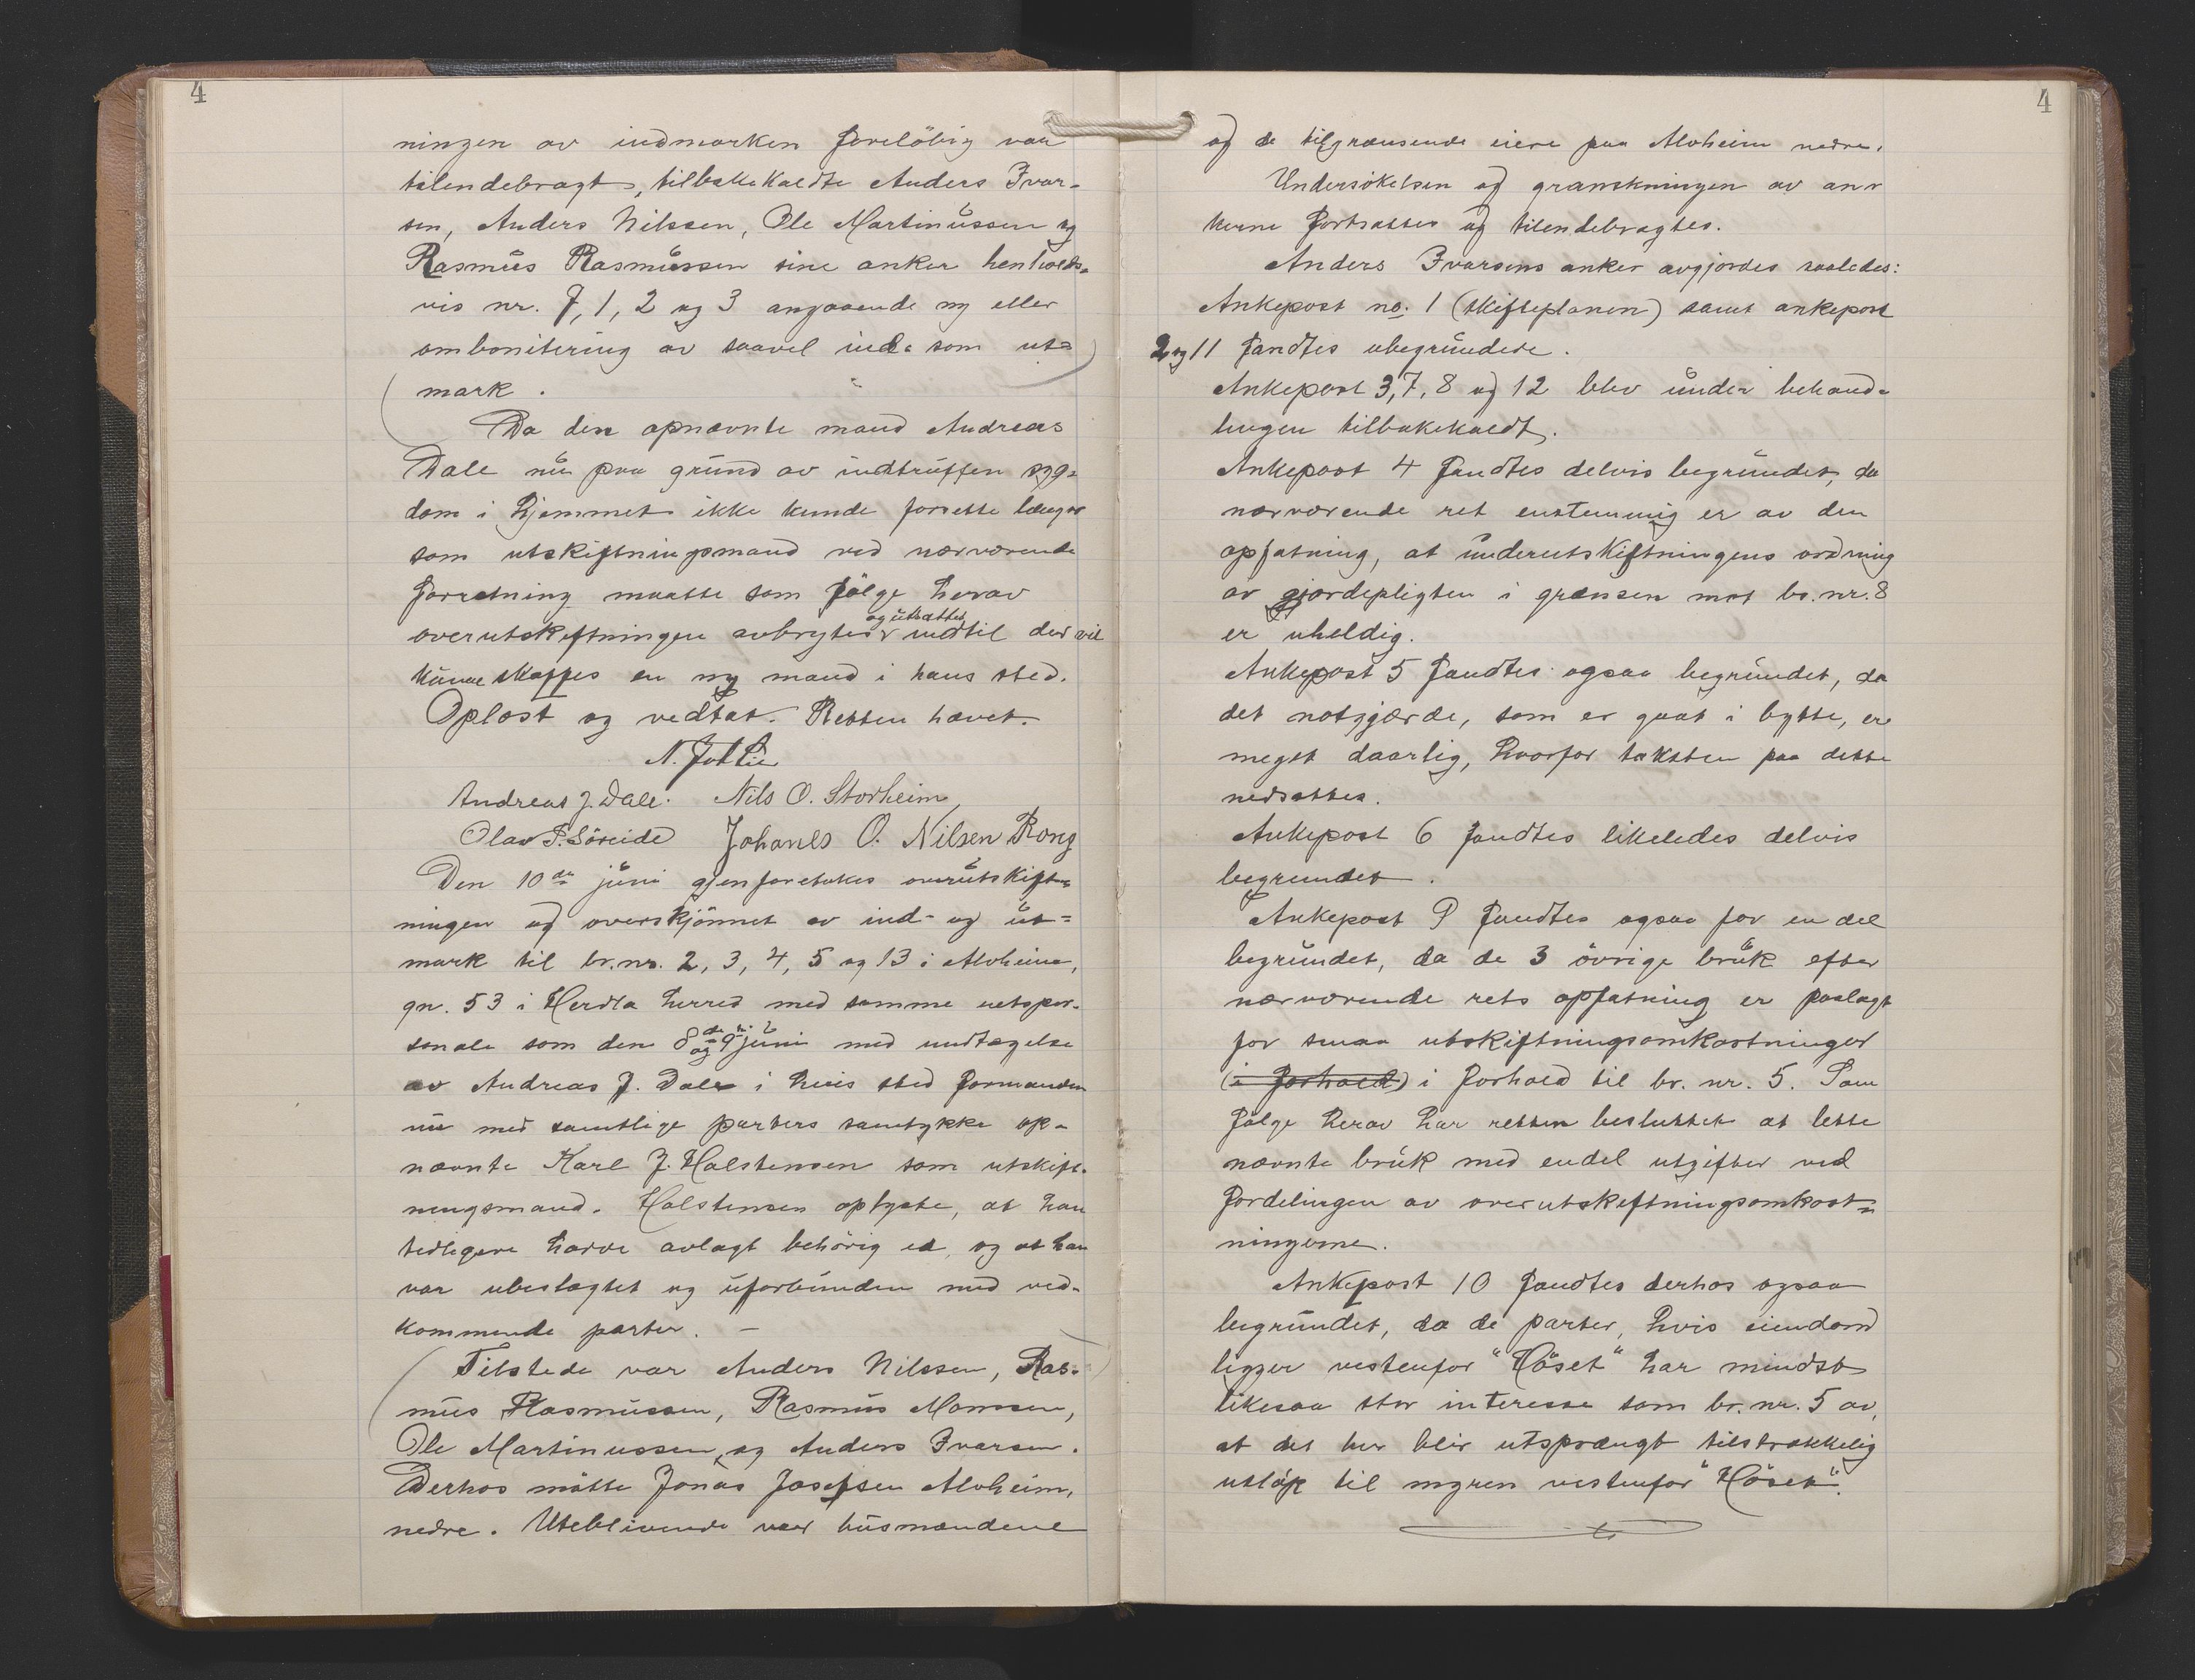 4
ningen av indmarken foreløbig var
tilendebragt, tilbakekaldte Anders Ivar-
sen, Anders Nilssen, Ole Martinussen og
Rasmus Rasmussen sine anker henholds-
vis nr. 7, 1, 2 og 3 angaaende ny eller
ombonitering av saavel ind- som ut=
mark.
Da den opnævnte mand Andreas
Dale nu paa grund av indtruffen syg-
dom i hjemmet ikke kunde forsette længer
som utskiftningsmand ved nærværende
forretning maatte som følge herav
og utsættes
overutskiftningen avbrytes indtil der vil
kunne skaffes en ny mand i hans sted.
Oplæst og vedtat. Retten hævet.
N.
Andreas J. Dale. Nils O. Storheim,
Olav P. Söreide Johanes O. Nilsen Rong
Den 10de juni gjenforetokes overutskift-
ningen og overskjönnet av ind- og ut=
mark til br.nr. 2, 3, 4, 5 og 13 i Alvheim,
gn. 53 i Herdla herred med samme retsper-
sonale som den 8de og 9de juni med undtagelse
av Andreas J. Dale i hvis sted formanden
nu med samtlige parters samtykke op-
nævnte Karl J. Halstensen som utskift-
ningsmand. Halstensen oplyste, at han
tidligere havde avlagt behörig ed, og at han
var ubeslægtet og uforbunden med ved-
kommende parter. —
Tilstede var Anders Nilssen, Ras-
mus Rasmussen, Rasmus Monssen,
Ole Martinussen, og Anders Ivarsen.
Derhos mötte Jonas Josefsen Alvheim,
nedre. Uteblivende var husmændene
4
og de tilgrænsende eiere paa Alvheim nedre.
Undersökelsen og granskningen av an-
kerne fortsattes og tilendebragtes.
Anders Ivarsens anker avgjordes saaledes:
Ankepost no. 1 (skifteplanen) samt ankepost
2 og 11 fandtes ubegrundede.
Ankepost 3, 7, 8 og 12 blev under behand-
lingen tilbakekaldt.
Ankepost 4 fandtes delvis begrundet, da
nærværende ret enstemmig er av den
opfatning, at underutskiftningens ordning
av gjærdepligten i grænsen mot br. nr. 8
er uheldig.
Ankepost 5 fandtes ogsaa begrundet, da
det notgjærde, som er gaat i bytte, er
meget daarlig, hvorfor taksten paa dette
nedsattes.
Ankepost 6 fandtes likeledes delvis
begrundet.
Ankepost 9 fandtes ogsaa for en del
begrundet, da de 3 övrige bruk efter
nærværende rets opfatning er paalagt
for smaa utskiftningsomkostninger
(i forhold) i forhold til br. nr. 5. Som
følge herav har retten besluttet at lette
nævnte bruk med endel utgifter ved
fordelingen av overutskiftningsomkost=
ningerne.
Ankepost 10 fandtes derhos ogsaa
begrundet, da de parter, hvis eiendom
ligger vestenfor "Höset" har mindst
likesaa stor interesse som br. nr. 5 av,
at det her blir utsprængt tilstrækkelig
utlöp til myren vestenfor "Höset".